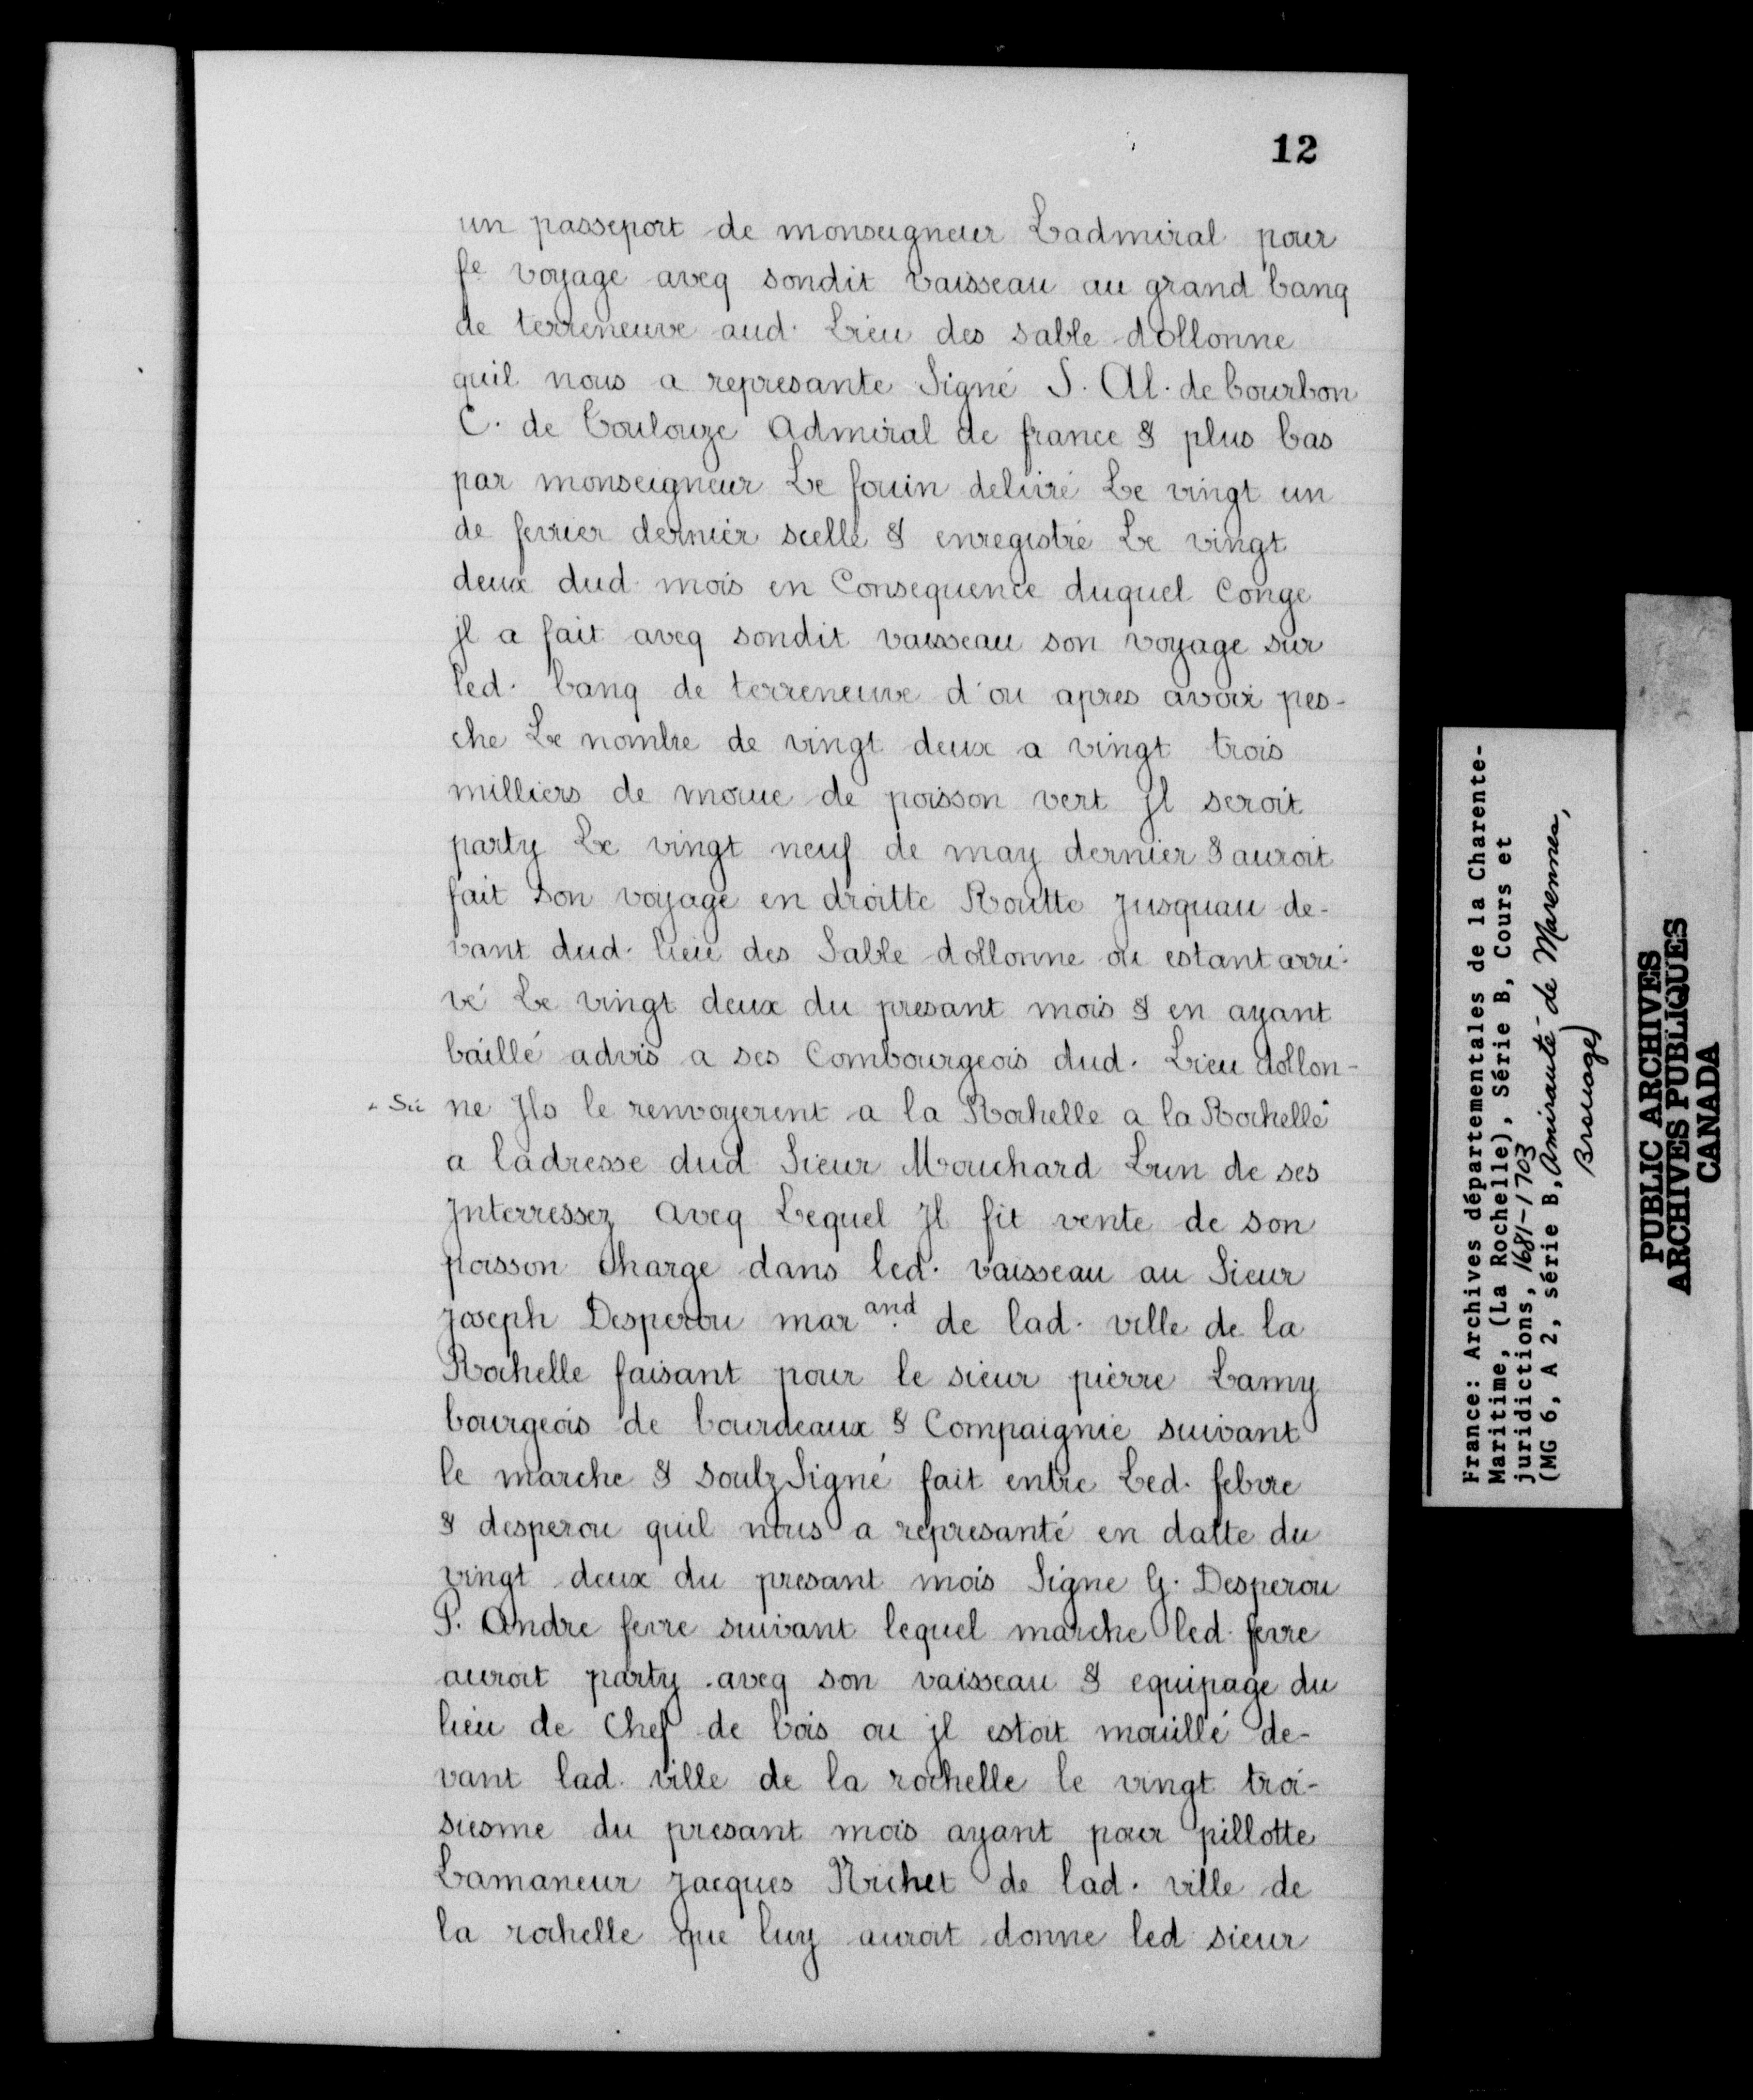 12
un passeport de monseigneur Ladmiral pour
fe voyage aveq sondit vaisseau au grand banq
de terreneuve aud. Lieu des sable dollonne
quil nous a represante Signé S. Al. de bourbon
C. de Toulouze Admiral de france & plus bas
par monseigneur Le fouin delivré Le vingt un
de fevrier dernier scellé & enregistré Le vingt
deux dud. mois en Consequence duquel Conge
jl a fait aveq sondit vaisseau son voyage sur
led. banq de terreneuve d'ou apres avoir pes-
che Le nombre de vingt deux a vingt trois
milliers de moue de poisson vert jl seroit
party Le vingt neuf de may dernier & auroit
fait son voyage en droitte Routte Jusquau de-
vant dud. lieu des Sable dollonne ou estant arri-
vé Le vingt deux du presant mois & en ayant
baillé advis a ses Combourgeois dud. Lieu dollon-
+ Sic ne Jls le renvoyerent a la Rochelle a la Rochelle+
a ladresse dud Sieur Mouchard Lun de ses
Jnterressez aveq Lequel Jl fit vente de son
poisson Charge dans led. vaisseau au Sieur
Joseph Desperou marand. de lad. ville de la
Rochelle faisant pour le sieur pierre Lamy
bourgeois de bourdeaux & Compaignie suivant
le marche & soulz Signé fait entre Led. febvre
& desperou quil nous a represanté en datte du
vingt deux du presant mois Signe G. Desperou
P. Andre fevre suivant lequel marche led. fevre
auroit party aveq son vaisseau & equipage du
lieu de Chef de bois ou jl estoit mouillé de-
vant lad. ville de la rochelle le vingt troi-
siesme du presant mois ayant pour pillotte
Lamaneur Jacques Richet de lad. ville de
la rochelle que luy auroit donne led sieur
France: Archives départementales de la Charente-
Maritime, (La Rochelle), Série B, Cours et
juridictions, 1681-1703
(MG 6, A 2, série B, Amirauté de Marennes,
Brouage)
PUBLIC ARCHIVES
ARCHIVES PUBLIQUES
CANADA